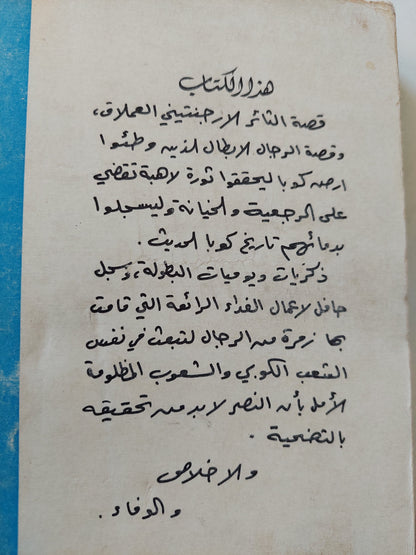 هذا الكتاب
قصة الثائر الارجنتيني العملاق،
وقصة الرجال الابطال الذين وطئوا
ارض كوبا ليحققوا ثورة لاهبة تقضي
على الرجعية والخيانة وليسجلوا
بدمائهم تاريخ كوبا الحديث.
ذكريات ويوميات البطولة، وسجل
حافل لاعمال الفداء الرائعة التي قامت
بها زمرة من الرجال لتبعث في نفس
الشعب الكوبي والشعوب المظلومة
الأمل بأن النصر لا بد من تحقيقه
بالتضحية.
والاخلاص
والوفاء.